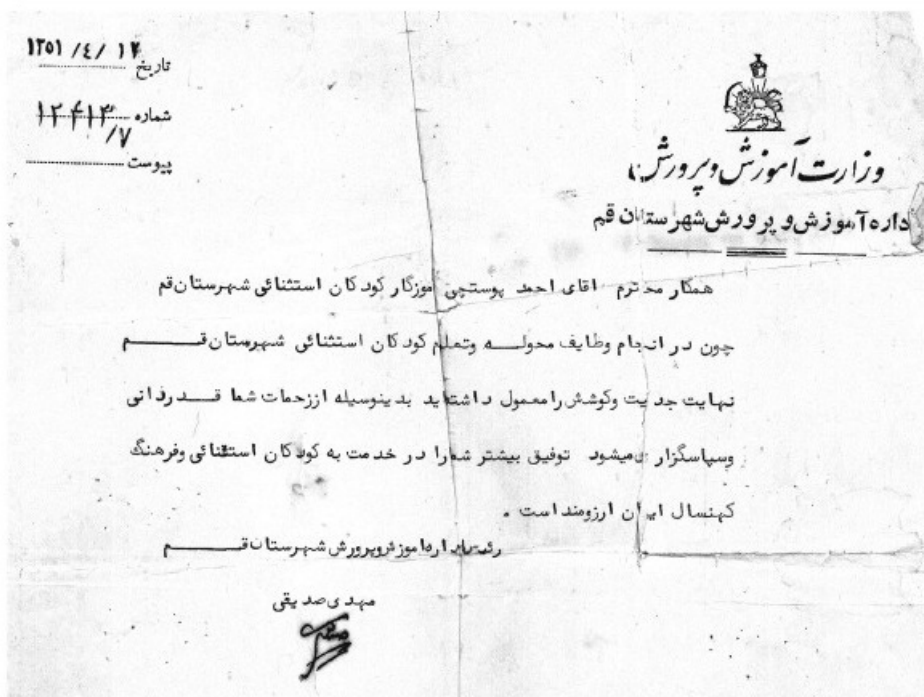 ۱۳۵۱ /٤/ ۱۷
تاریخ
شماره ۱۲۴۱۳/۷
پیوست
وزارت آموزش و پرورش
اداره آموزش و پرورش شهرستان قم
همکار محترم اقای احمد پوستچی اموزگار کودکان استثنائی شهرستان قم
چون در انجام وظایف محوله وتعلیم کودکان استثنائی شهرستان قم
نهایت جدیت وکوشش را معمول داشته‌اید بدینوسیله اززحمات شما قدردانی
وسپاسگزاری میشود توفیق بیشتر شما را در خدمت به کودکان استثنائی وفرهنگ
کهنسال ایران ارزومند است .
رئیس اداره اموزش وپرورش شهرستان قم
مهدی صدیقی